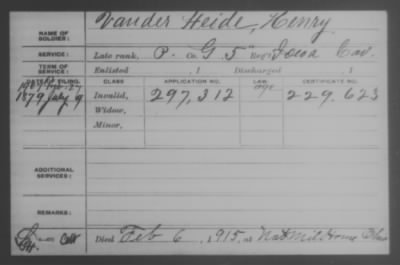 NAME OF SOLDIER: Vander Heide, Henry
SERVICE: Late rank, P. Co. G 5" Reg't Iowa Cav.
TERM OF SERVICE: Enlisted , 1 Discharged , 1
DATE OF FILING. CLASS APPLICATION NO. LAW. CERTIFICATE NO.
1879 July 9 Invalid, 297,312 229,623
Widow,
Minor,
ADDITIONAL SERVICES:
REMARKS:
Died Feb 6, 1915, at Nat Mil Home